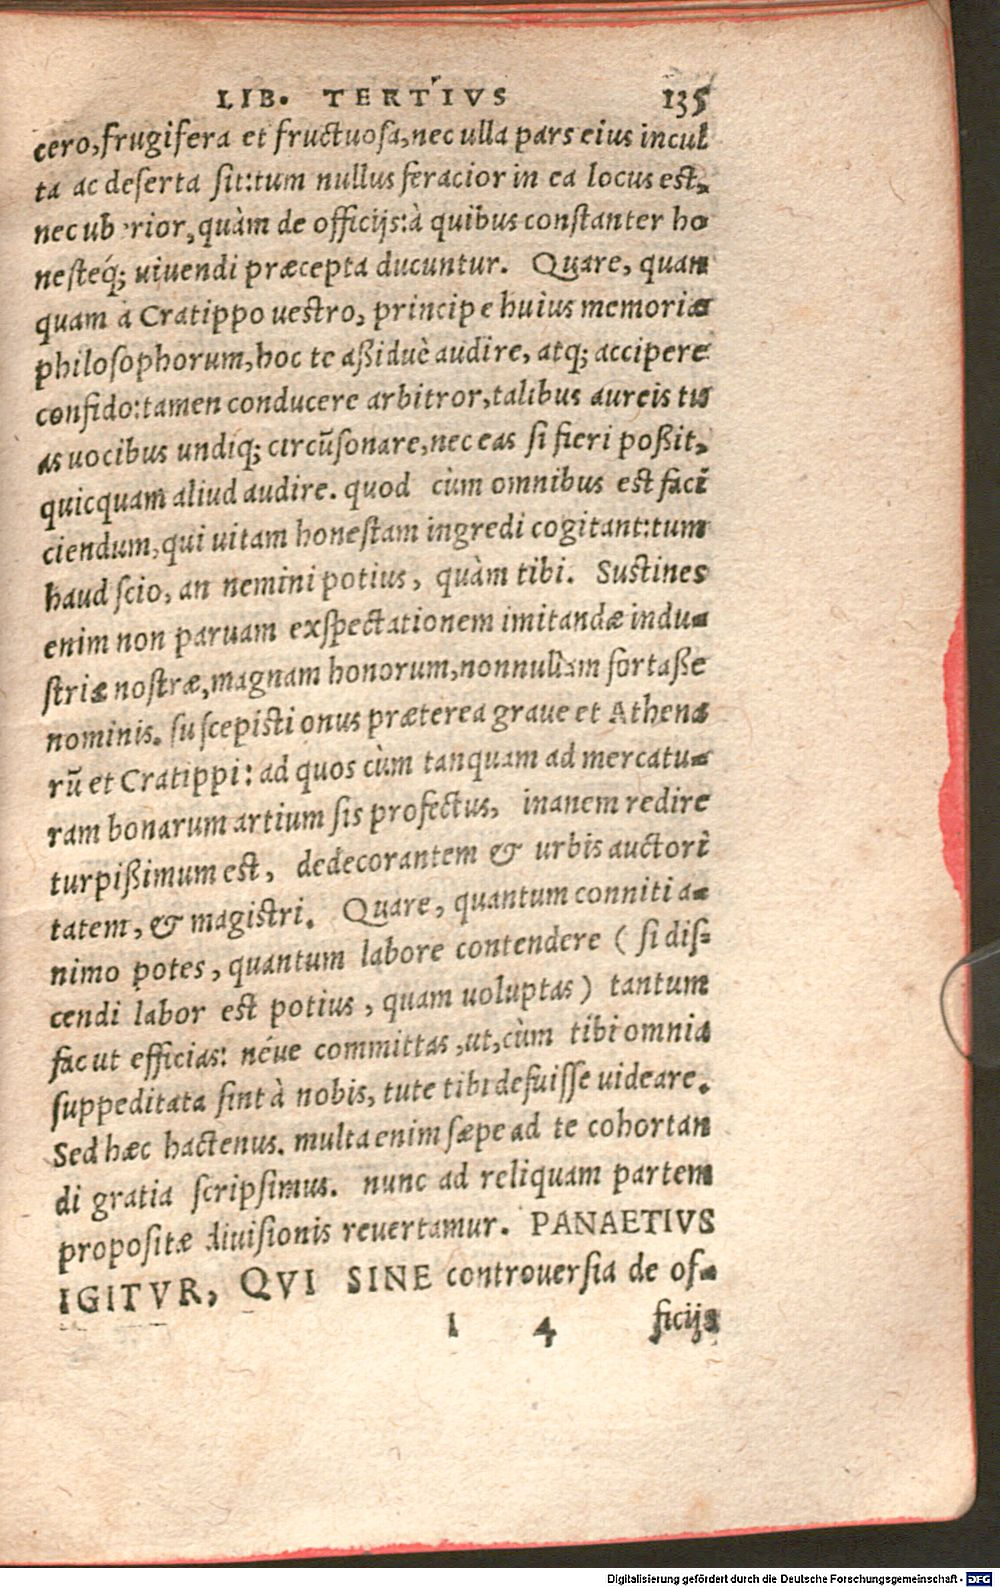 LIB. TERTIVS 135
cero, frugifera et fructuosa, nec ulla pars eius incul
ta ac deserta sit: tum nullus feracior in ea locus est,
nec ub rior, quàm de officijs: à quibus constanter ho
nesteq́; uiuendi præcepta ducuntur. Quare, quan
quam à Cratippo uestro, principe huius memoriæ
philosophorum, hoc te aßiduè audire, atq; accipere
confido: tamen conducere arbitror, talibus aureis tu
as uocibus undiq; circũsonare, nec eas si fieri poßit,
quicquam aliud audire. quod cùm omnibus est faci
ciendum, qui uitam honestam ingredi cogitant: tum
haud scio, an nemini potius, quàm tibi. Sustines
enim non paruam exspectationem imitandæ indu-
striæ nostræ, magnam honorum, nonnullam fortaße
nominis. suscepisti onus præterea graue et Athena
rũ et Cratippi: ad quos cùm tanquam ad mercatu-
ram bonarum artium sis profectus, inanem redire
turpißimum est, dedecorantem & urbis auctori
tatem, & magistri. Quare, quantum conniti a-
nimo potes, quantum labore contendere ( si dis-
cendi labor est potius, quam uoluptas) tantum
fac ut efficias: néue committas, ut, cùm tibi omnia
suppeditata sint à nobis, tute tibi defuisse uideare.
Sed hæc hactenus. multa enim sæpe ad te cohortan
di gratia scripsimus. nunc ad reliquam partem
propositæ diuisionis reuertamur. PANAETIVS
IGITVR, QVI SINE controuersia de of-
I 4 ficijs
Digitalisierung gefördert durch die Deutsche Forschungsgemeinschaft - DFG